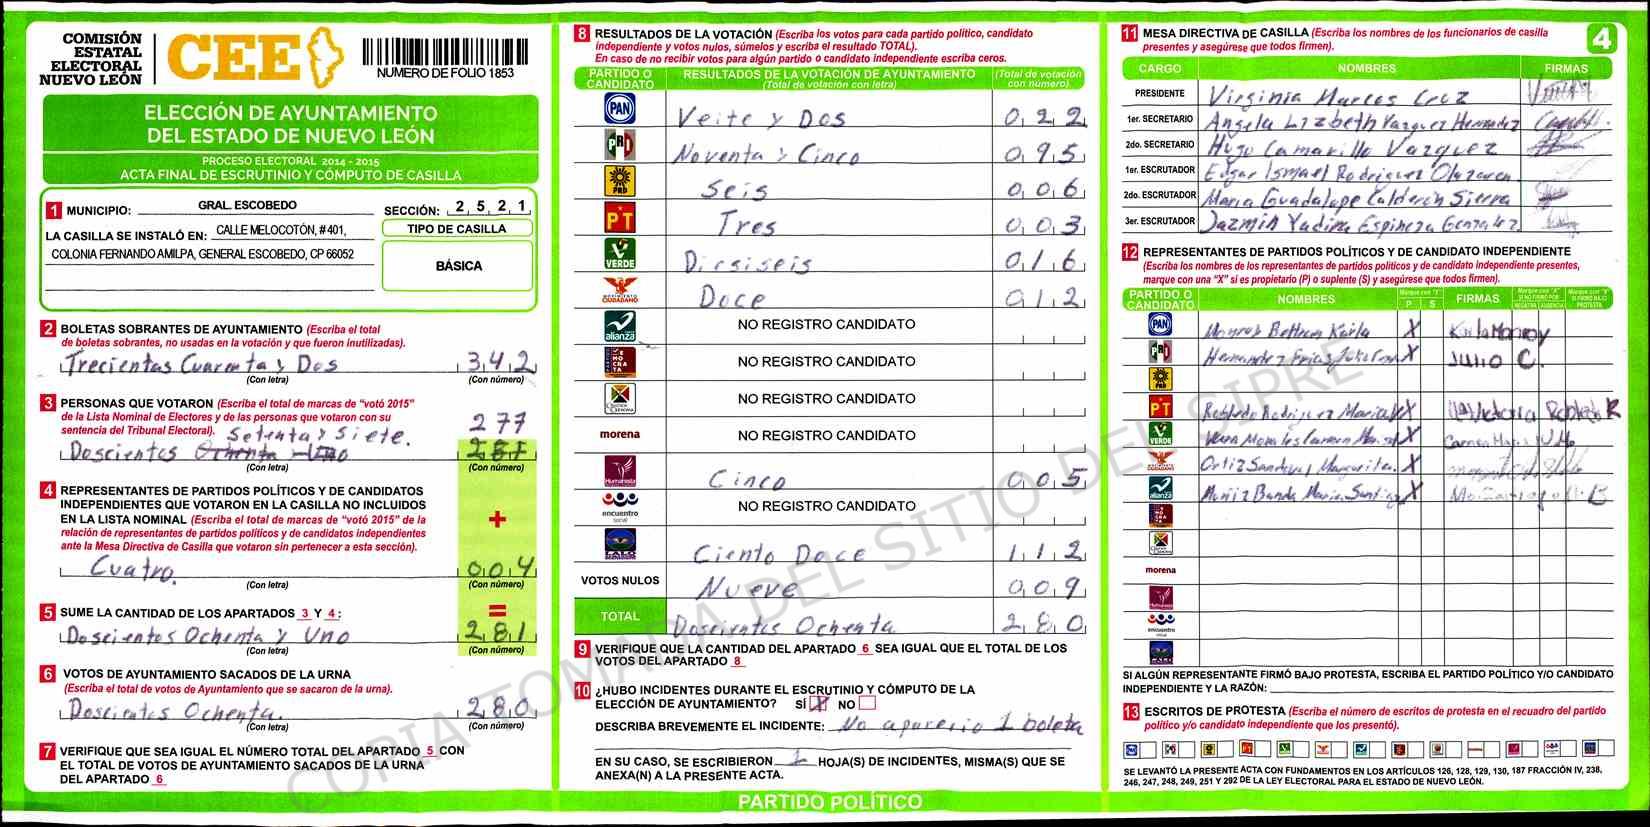 COMISIÓN
ESTATAL
ELECTORAL
NUEVO LEÓN
CEE
NUMERO DE FOLIO 1853
ELECCIÓN DE AYUNTAMIENTO
DEL ESTADO DE NUEVO LEÓN
PROCESO ELECTORAL 2014 - 2015
ACTA FINAL DE ESCRUTINIO Y CÓMPUTO DE CASILLA
1 MUNICIPIO: GRAL. ESCOBEDO SECCIÓN: 2 5 2 1
LA CASILLA SE INSTALÓ EN: CALLE MELOCOTÓN, # 401,
COLONIA FERNANDO AMILPA, GENERAL ESCOBEDO, CP 66052
TIPO DE CASILLA
BÁSICA
2 BOLETAS SOBRANTES DE AYUNTAMIENTO (Escriba el total
de boletas sobrantes, no usadas en la votación y que fueron inutilizadas).
Trecientas Cuarenta y Dos 3 4 2
(Con letra) (Con número)
3 PERSONAS QUE VOTARON (Escriba el total de marcas de "votó 2015"
de la Lista Nominal de Electores y de las personas que votaron con su
sentencia del Tribunal Electoral). Setenta y Siete. 277
Doscientos Ochenta Uno
(Con letra) (Con número)
4 REPRESENTANTES DE PARTIDOS POLÍTICOS Y DE CANDIDATOS
INDEPENDIENTES QUE VOTARON EN LA CASILLA NO INCLUIDOS
EN LA LISTA NOMINAL (Escriba el total de marcas de "votó 2015" de la
relación de representantes de partidos políticos y de candidatos independientes
ante la Mesa Directiva de Casilla que votaron sin pertenecer a esta sección).
+
Cuatro. 0 0 4
(Con letra) (Con número)
=
5 SUME LA CANTIDAD DE LOS APARTADOS 3 Y 4:
Doscientos Ochenta y Uno 2 8 1
(Con letra) (Con número)
6 VOTOS DE AYUNTAMIENTO SACADOS DE LA URNA
(Escriba el total de votos de Ayuntamiento que se sacaron de la urna).
Doscientos Ochenta. 2 8 0
(Con letra) (Con número)
7 VERIFIQUE QUE SEA IGUAL EL NÚMERO TOTAL DEL APARTADO 5 CON
EL TOTAL DE VOTOS DE AYUNTAMIENTO SACADOS DE LA URNA
DEL APARTADO 6
8 RESULTADOS DE LA VOTACIÓN (Escriba los votos para cada partido político, candidato
independiente y votos nulos, súmelos y escriba el resultado TOTAL).
En caso de no recibir votos para algún partido o candidato independiente escriba ceros.
PARTIDO O CANDIDATO RESULTADOS DE LA VOTACIÓN DE AYUNTAMIENTO (Total de votación con letra) (Total de votación con número)
PAN Veite y Dos 0 2 2
PRD Noventa y Cinco 0 9 5
PRD Seis 0 0 6
PT Tres 0 0 3
VERDE Diesiseis 0 1 6
MOVIMIENTO CIUDADANO Doce 0 1 2
alianza NO REGISTRO CANDIDATO
DEMOCRATA NO REGISTRO CANDIDATO
NO REGISTRO CANDIDATO
morena NO REGISTRO CANDIDATO
Humanista Cinco 0 0 5
encuentro social NO REGISTRO CANDIDATO
Ciento Doce 1 1 2
VOTOS NULOS Nueve 0 0 9
TOTAL Doscientos Ochenta 2 8 0
9 VERIFIQUE QUE LA CANTIDAD DEL APARTADO 6 SEA IGUAL QUE EL TOTAL DE LOS
VOTOS DEL APARTADO 8
10 ¿HUBO INCIDENTES DURANTE EL ESCRUTINIO Y CÓMPUTO DE LA
ELECCIÓN DE AYUNTAMIENTO? SÍ X NO
DESCRIBA BREVEMENTE EL INCIDENTE: No aparecio 1 boleta
EN SU CASO, SE ESCRIBIERON 1 HOJA(S) DE INCIDENTES, MISMA(S) QUE SE
ANEXA(N) A LA PRESENTE ACTA.
PARTIDO POLÍTICO
11 MESA DIRECTIVA DE CASILLA (Escriba los nombres de los funcionarios de casilla
presentes y asegúrese que todos firmen).
4
CARGO NOMBRES FIRMAS
PRESIDENTE Virginia Marcos Cruz
1er. SECRETARIO Angela Lizbeth Vazquez Hernandez
2do. SECRETARIO Hugo Camarillo Vazquez
1er. ESCRUTADOR Edgar Ismael Rodriguez
2do. ESCRUTADOR Maria Guadalupe Calderón Sierra
3er. ESCRUTADOR Jazmin Yadira Espinoza Gonzalez
12 REPRESENTANTES DE PARTIDOS POLÍTICOS Y DE CANDIDATO INDEPENDIENTE
(Escriba los nombres de los representantes de partidos políticos y de candidato independiente presentes,
marque con una "X" si es propietario (P) o suplente (S) y asegúrese que todos firmen).
PARTIDO O CANDIDATO NOMBRES P S FIRMAS
PAN Monroy Beltran Karla X Karla Monroy
Hernandez Frias Julio X Julio C.
PRD
PT Robledo Rodriguez Maria X Victoria Robledo R
VERDE Vera Morales Carmen X
Ortiz Sandoval Margarita. X
alianza Muñiz Banda Maria Santiago X
morena
Humanista
encuentro social
SI ALGÚN REPRESENTANTE FIRMÓ BAJO PROTESTA, ESCRIBA EL PARTIDO POLÍTICO Y/O CANDIDATO
INDEPENDIENTE Y LA RAZÓN:
13 ESCRITOS DE PROTESTA (Escriba el número de escritos de protesta en el recuadro del partido
político y/o candidato independiente que los presentó).
SE LEVANTÓ LA PRESENTE ACTA CON FUNDAMENTOS EN LOS ARTÍCULOS 126, 128, 129, 130, 187 FRACCIÓN IV, 238,
246, 247, 248, 249, 251 Y 292 DE LA LEY ELECTORAL PARA EL ESTADO DE NUEVO LEÓN.
COPIA TOMADA DEL SITIO DEL SIPRE